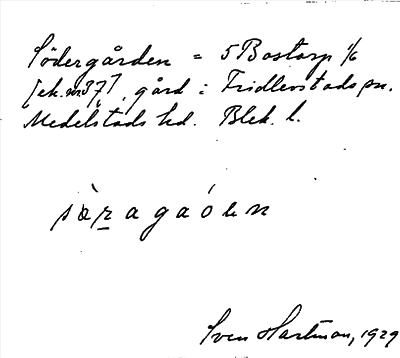 Södergården = 5 Bostorp 1/6
[ek. nr 37], gård i Fridlevstads sn.
Medelstads hd. Blek. l.
sàragaóen
Sven Hartman, 1929